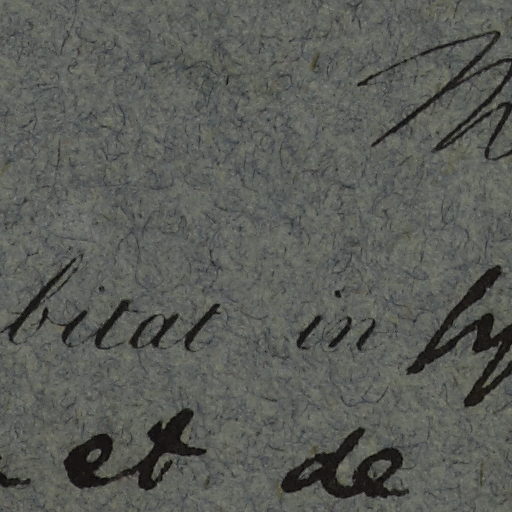 bitat in
et de